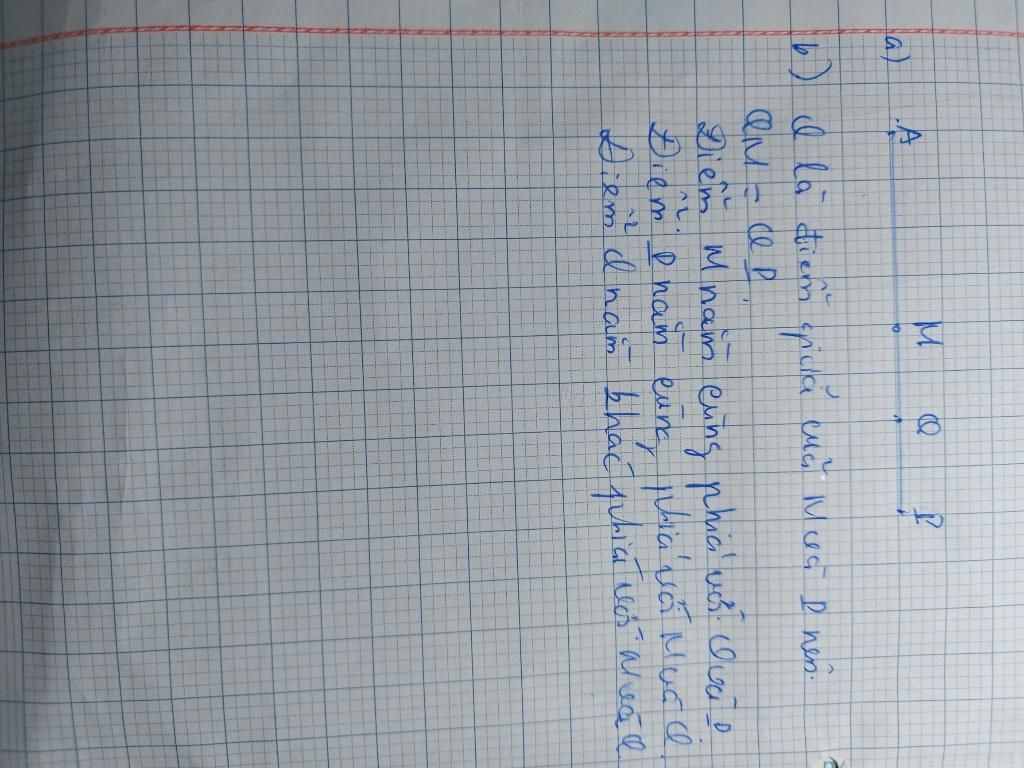 a) A M Q P
b) Q là điểm giữa của M và P nên
QM = QP
Điểm M nằm cùng phía với Q với P
Điểm P nằm cùng phía với M và Q.
Điểm Q nằm khác phía với M và Q